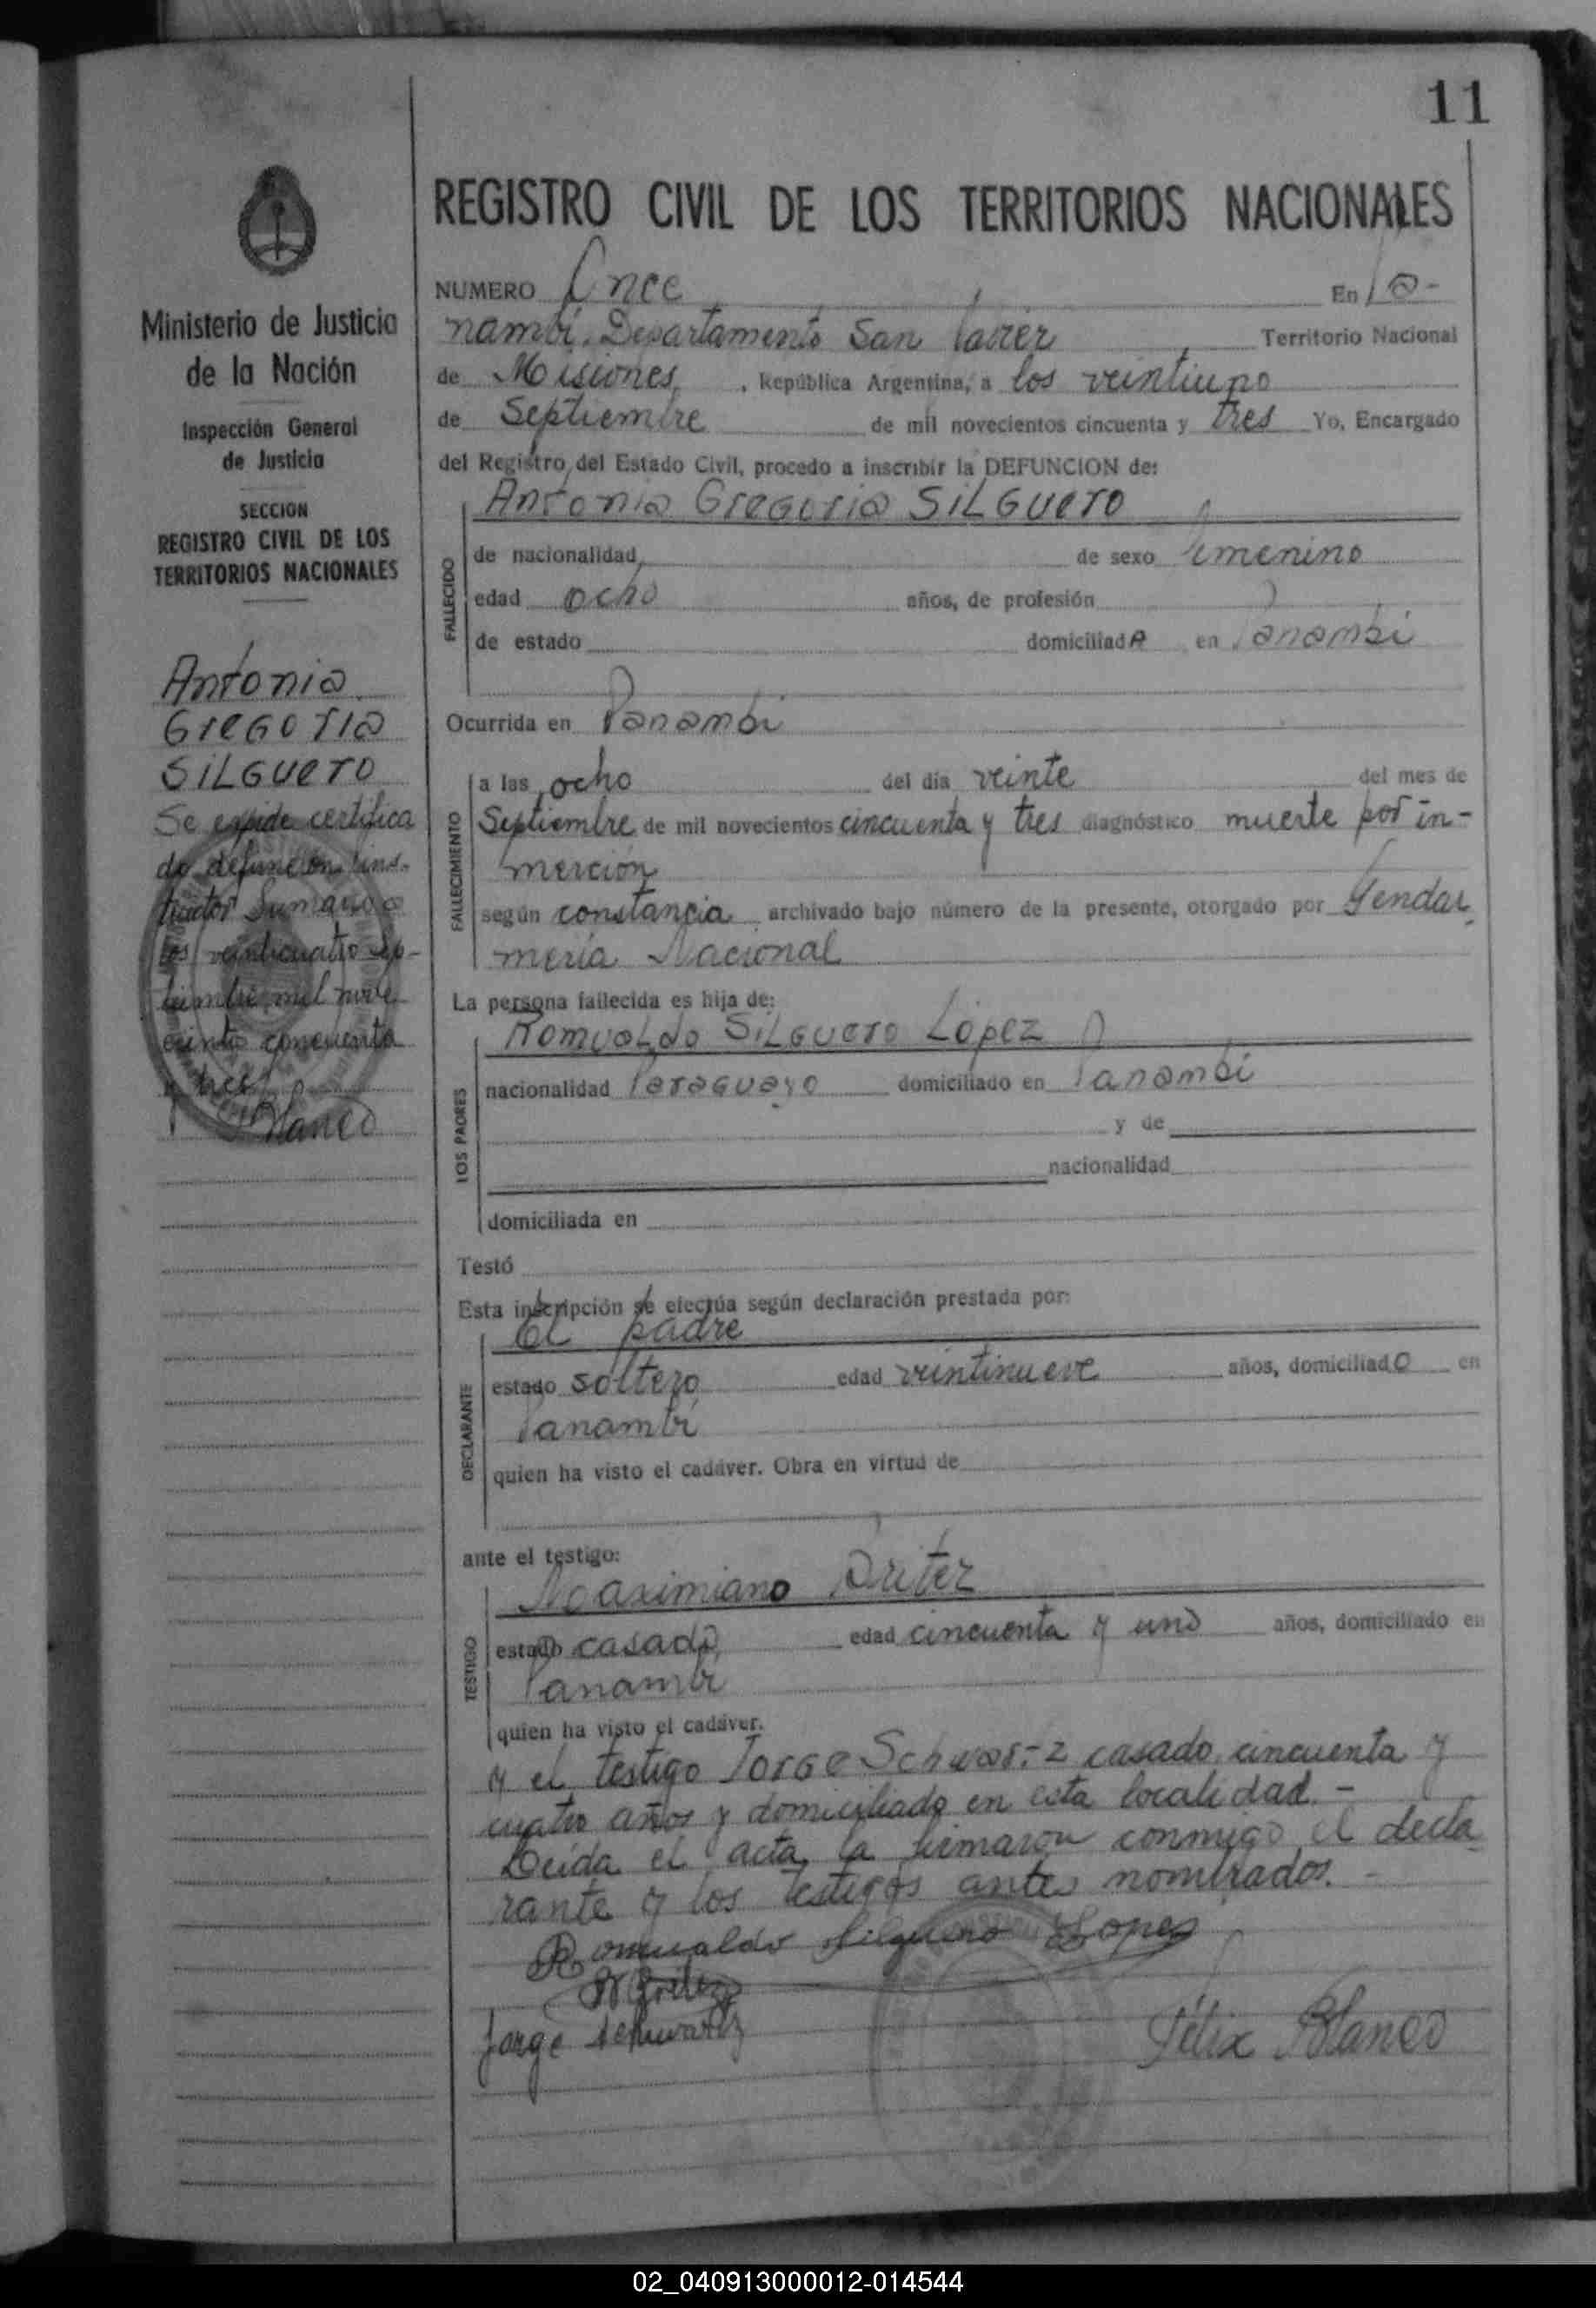 11
Ministerio de Justicia
de la Nación
Inspección General
de Justicia
SECCION
REGISTRO CIVIL DE LOS
TERRITORIOS NACIONALES
Antonia
GREGORIA
SILGUERO
Se expide certifica
do defunción ins-
tructor Sumario a
los veinticuatro sep-
tiembre mil nove
cientos cincuenta
y tres
Blanco
REGISTRO CIVIL DE LOS TERRITORIOS NACIONALES
NUMERO Once En Pa-
nambí, Departamento San Javier Territorio Nacional
de Misiones, República Argentina, a los veintiuno
de Septiembre de mil novecientos cincuenta y tres Yo, Encargado
del Registro del Estado Civil, procedo a inscribir la DEFUNCION de:
Antonia Gregoria SILGUERO
FALLECIDO
de nacionalidad de sexo femenino
edad ocho años, de profesión
de estado domiciliadA en Panambi
Ocurrida en Panambi
FALLECIMIENTO
a las ocho del día veinte del mes de
Septiembre de mil novecientos cincuenta y tres diagnóstico muerte por in-
merción
según constancia archivado bajo número de la presente, otorgado por Gendar
mería Nacional
La persona fallecida es hija de:
LOS PADRES
Romualdo SILGUERO López
nacionalidad Paraguayo domiciliado en Panambi
y de
nacionalidad
domiciliada en
Testó
Esta inscripción se efectúa según declaración prestada por:
DECLARANTE
El padre
estado soltero edad veintinueve años, domiciliado en
Panambí
quien ha visto el cadáver. Obra en virtud de
ante el testigo:
TESTIGO
Maximiano
estado casado edad cincuenta y uno años, domiciliado en
Panambí
quien ha visto el cadáver.
y el testigo Jorge Schwartz casado, cincuenta y
cuatro años y domiciliado en esta localidad.-
Leída el acta, la firmaron conmigo el decla
rante y los testigos antes nombrados.-
Romualdo Silguero Lopez
Jorge Schwartz
Félix Blanco
02_040913000012-014544